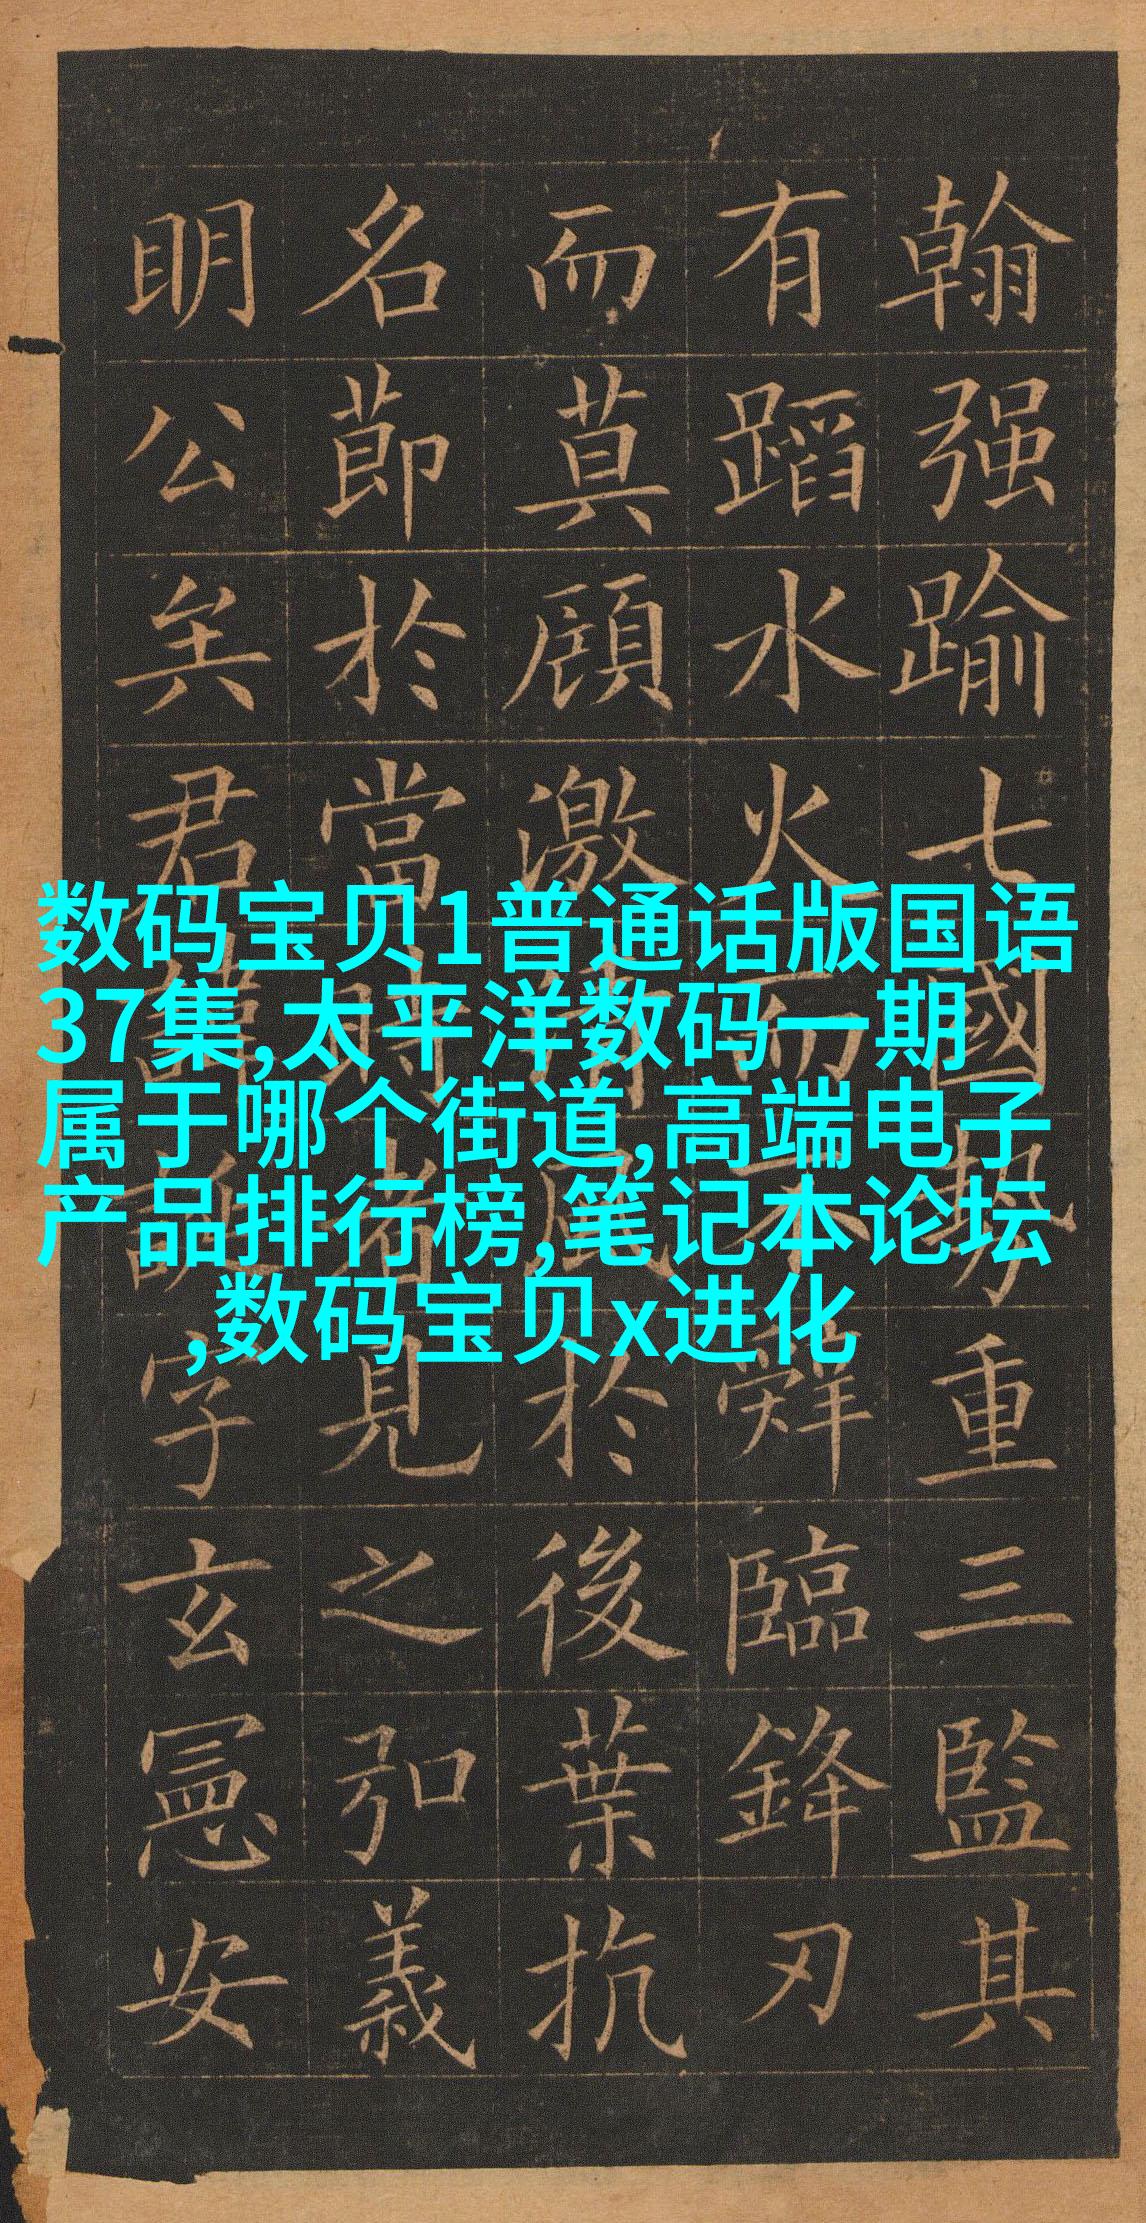 翰强踰七國勢重三監其
有蹈水火而不辭臨鋒刃
而莫顧激清風於後葉抗
名節於當時者見之弘義
明公矣君諱誕字玄憲安
数码宝贝1普通话版国语
37集,太平洋数码一期
属于哪个街道,高端电子
产品排行榜,笔记本论坛
,数码宝贝x进化